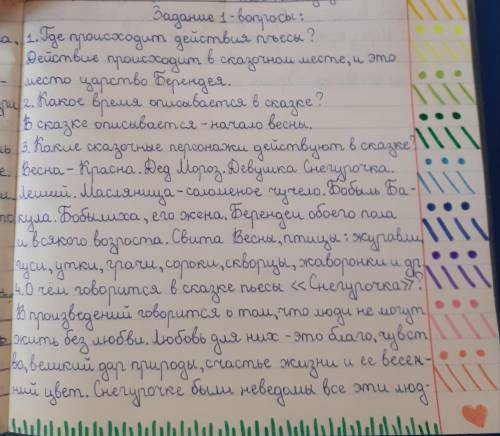 Задание 1-вопросы:
1. Где происходит действия пъесы?
Действие происходит в сказочном месте, и это
место царство Берендея.
2. Какое время описывается в сказке?
В сказке описывается - начало весны.
3. Какие сказочные персонажи действуют в сказке?
Весна - Красна. Дед Мороз. Девушка Снегурочка.
Леший. Масляница - саломеное чучело. Бобыль Ба-
кула. Бобылиха, его жена. Берендеи обоего пола
и всякого возроста. Свита Весны, птицы: журавли,
гуси, утки, грачи, сороки, скворцы, жаворонки и др.
4. О чём говорится в сказке пьесы <<Снегурочка>>?
В произведений говорится о том, что люди не могут
жить без любви. Любовь для них - это благо, чувст-
во, великий дар природы, счастье жизни и ее весен-
ний цвет. Снегурочке были неведомы все эти люд-